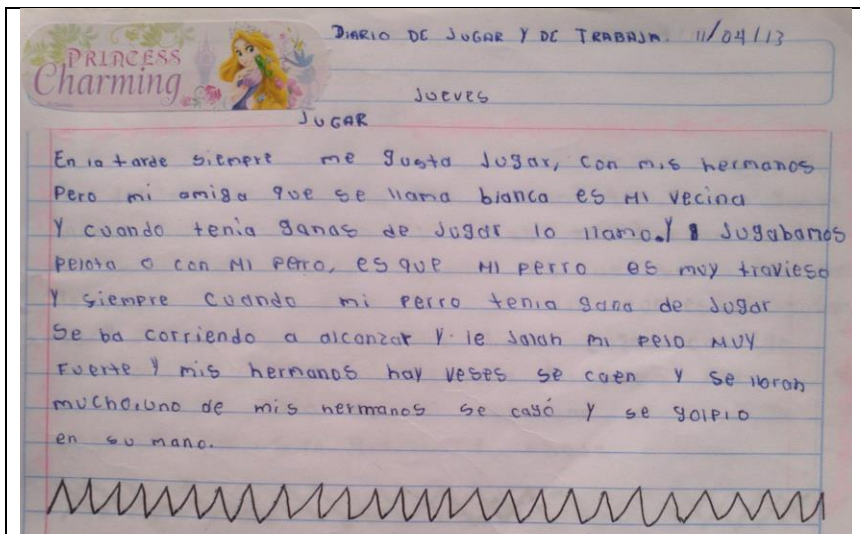 DIARIO DE JUGAR Y DE TRABAJA. 11/04/13
PRINCESS
Charming
JUEVES
JUGAR
En la tarde siempre me gusta Jugar, con mis hermanos
Pero mi amiga que se llama blanca es Mi vecina
Y cuando tenia ganas de Jugar lo llamo. Y Jugabamos
pelota o con Mi perro, es que Mi perro es muy travieso
Y siempre cuando mi perro tenia gana de Jugar
Se ba corriendo a alcanzar Y le Jalan mi pelo MUY
Fuerte Y mis hermanos hay veses se caen Y se lloran
mucho, uno de mis hermanos se cayó Y se golpio
en su mano.